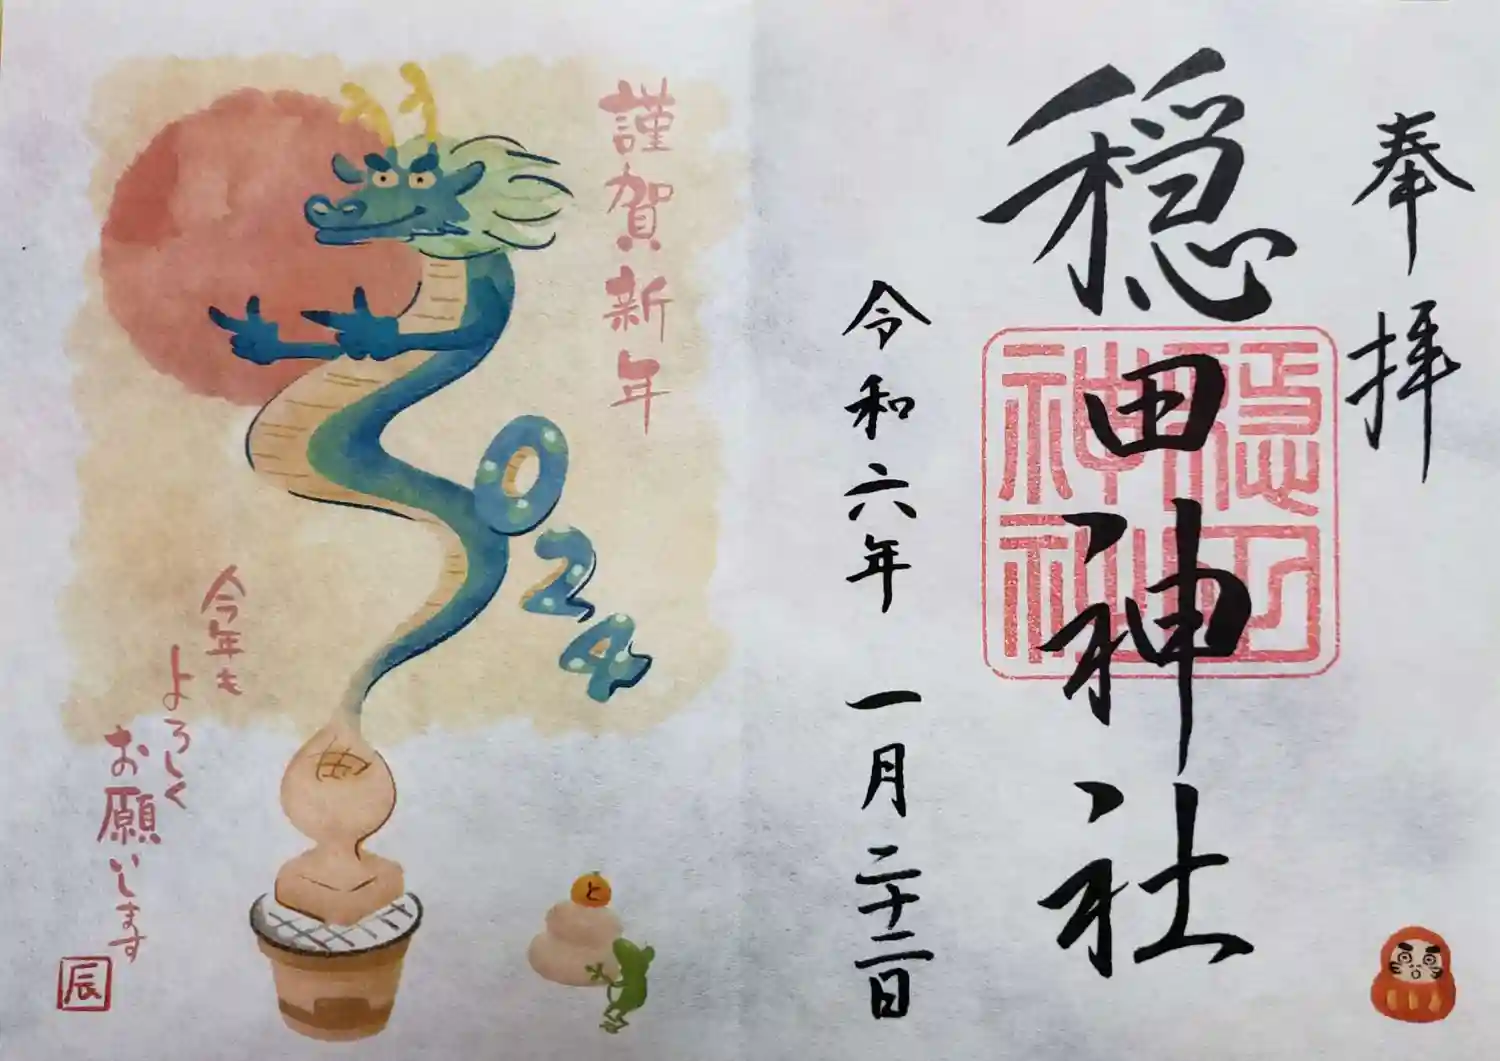 奉拝
穏田神社
令和六年 一月二十二日
謹賀新年
2024
今年も
よろしく
お願いします
辰
と